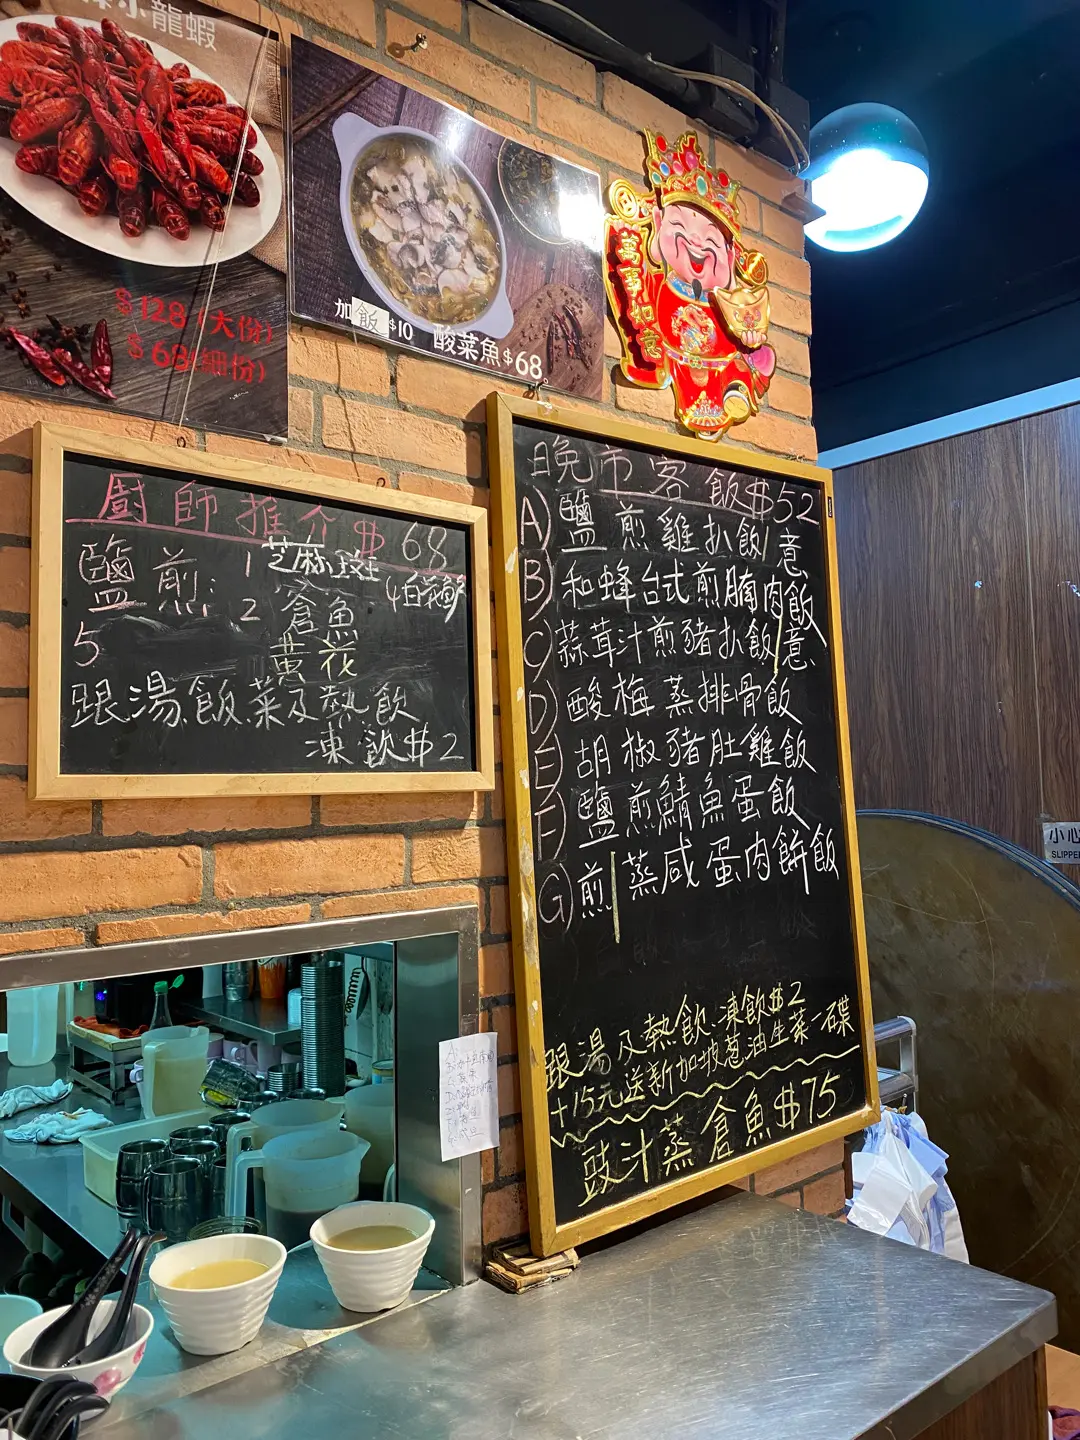 小龍蝦
$128(大份)
$68(細份)
加飯$10 酸菜魚$68
萬事如意
廚師推介$68
鹽煎: 1芝麻斑
2倉魚
5黃花
跟湯飯菜及熱飲
凍飲$2
晚市客飯$52
A)鹽煎雞扒飯/意
B)和蜂台式煎腩肉飯
C)蒜茸汁煎豬扒飯/意
D)酸梅蒸排骨飯
E)胡椒豬肚雞飯
F)鹽煎鯖魚蛋飯
G)煎/蒸咸蛋肉餅飯
跟湯及熱飲.凍飲$2
+15元送新加坡蔥油生菜一碟
豉汁蒸倉魚$75
小心
SLIPPE